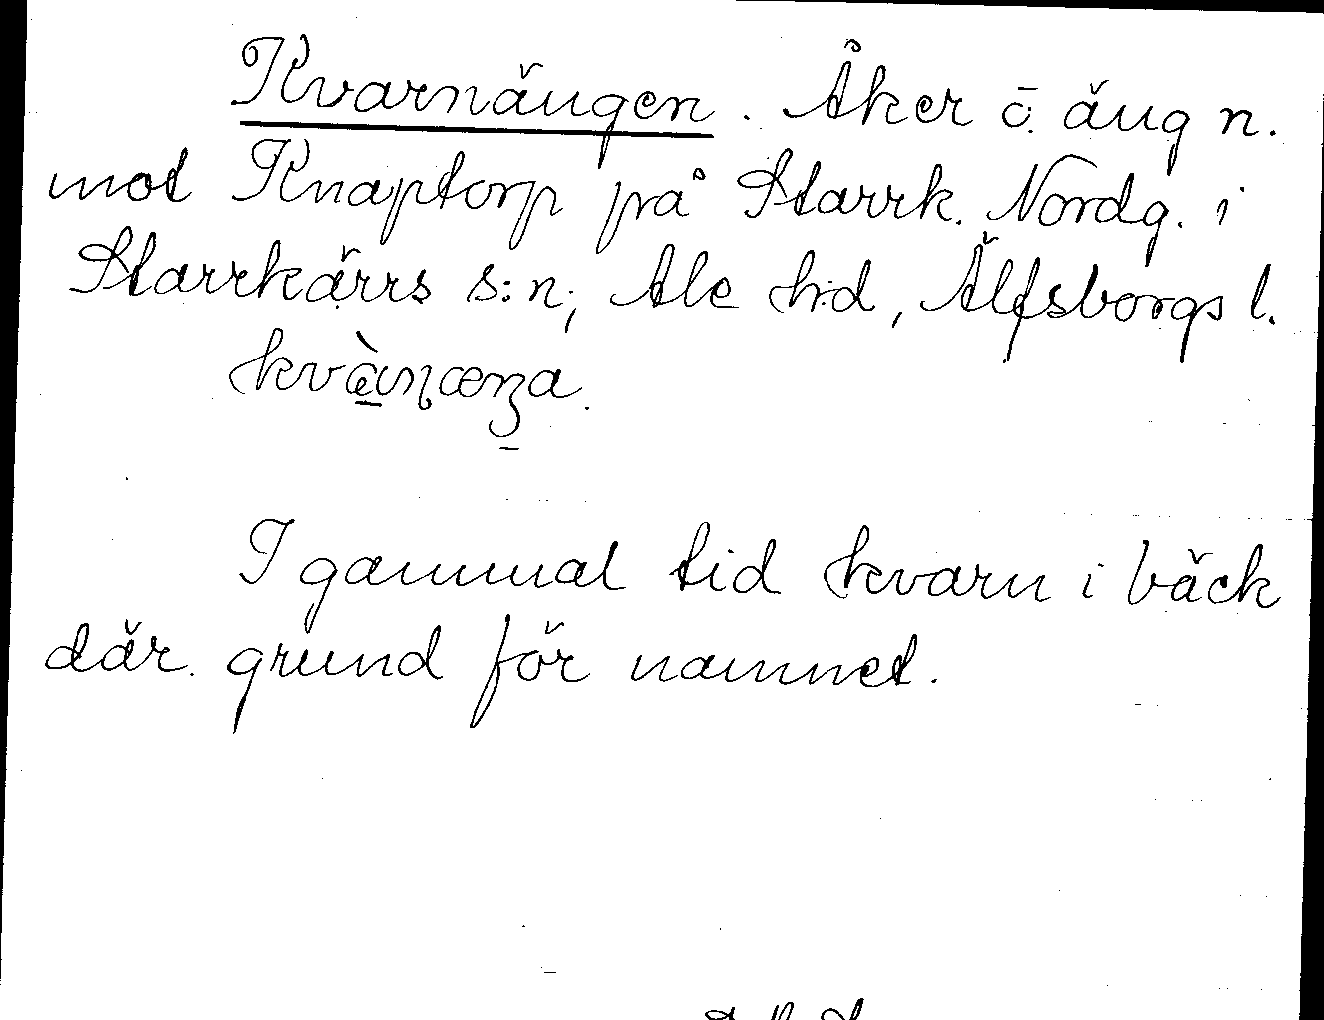 Kvarnängen. Åker o. äng n.
mot Knaptorp på Starrk. Nordg. i
Starrkärrs s:n, Ale hd, Älfsborgs l.
I gammal tid kvarn i bäck
där. grund för namnet.